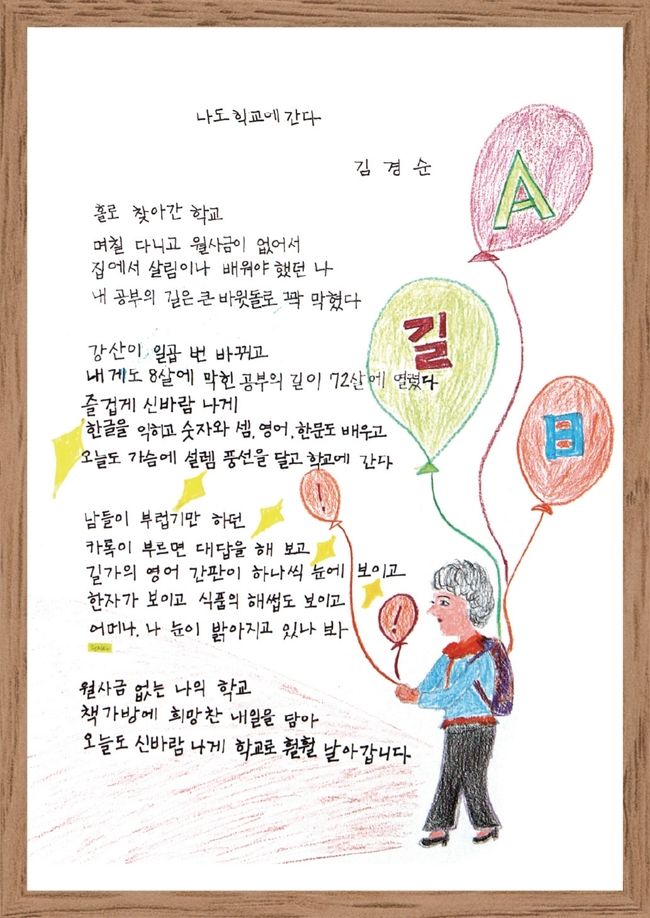 나도 학교에 간다
김경순
홀로 찾아간 학교
며칠 다니고 월사금이 없어서
집에서 살림이나 배워야 했던 나
내 공부의 길은 큰 바윗돌로 꽉 막혔다
강산이 일곱 번 바뀌고
내게도 8살에 막힌 공부의 길이 72살에 열렸다
즐겁게 신바람 나게
한글을 익히고 숫자와 셈, 영어, 한문도 배우고
오늘도 가슴에 설렘 풍선을 달고 학교에 간다
남들이 부럽기만 하던
카톡이 부르면 대답을 해 보고
길가의 영어 간판이 하나씩 눈에 보이고
한자가 보이고 식품의 해썹도 보이고
어머나, 나 눈이 밝아지고 있나 봐
월사금 없는 나의 학교
책가방에 희망찬 내일을 담아
오늘도 신바람 나게 학교로 훨훨 날아갑니다
A
길
日
!
!